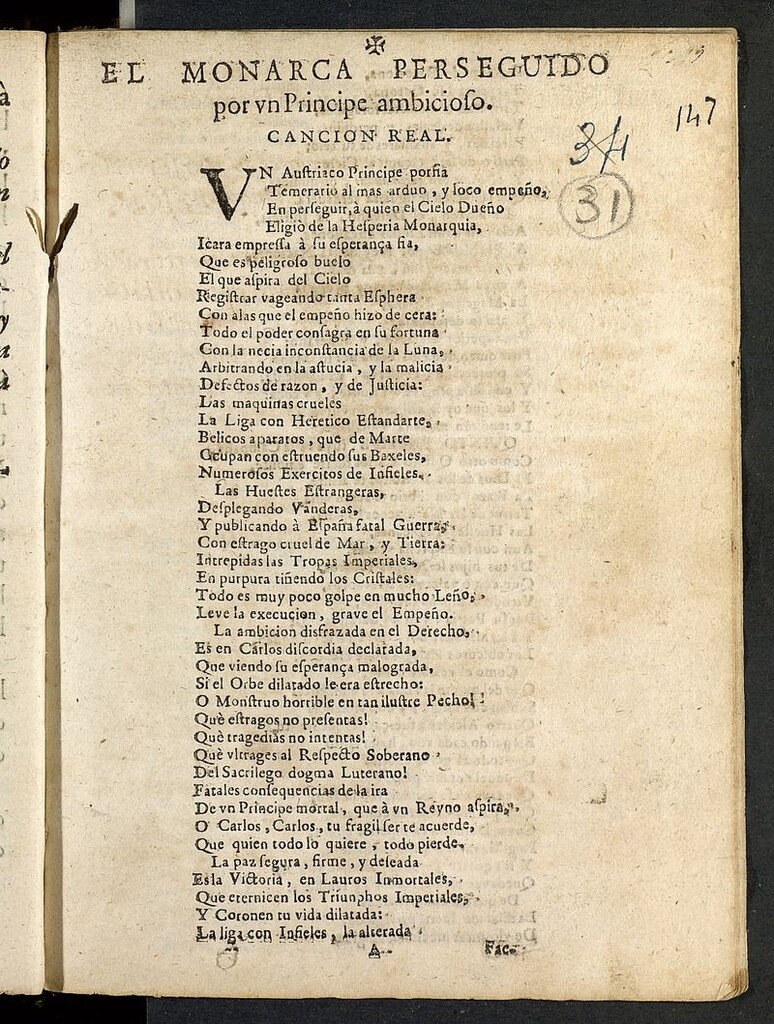 ✠
EL MONARCA PERSEGUIDO
por vn Principe ambicioſo.
CANCION REAL.
147
34
31
VN Auſtriaco Principe porfia
Temerario al mas arduo, y loco empeño,
En perſeguir, à quien el Cielo Dueño
Eligiò de la Heſperia Monarquia,
Icara empreſſa à ſu eſperança fia,
Que es peligroſo buelo
El que aſpira del Cielo
Regiſtrar vageando tanta Eſphera
Con alas que el empeño hizo de cera:
Todo el poder conſagra en ſu fortuna
Con la necia inconſtancia de la Luna,
Arbitrando en la aſtucia, y la malicia
Defectos de razon, y de Juſticia:
Las maquinas crueles
La Liga con Heretico Eſtandarte,
Belicos aparatos, que de Marte
Ocupan con eſtruendo ſus Baxeles,
Numeroſos Exercitos de Infieles,
Las Hueſtes Eſtrangeras,
Deſplegando Vanderas,
Y publicando à Eſpaña fatal Guerra,
Con eſtrago cruel de Mar, y Tierra:
Intrepidas las Tropas Imperiales,
En purpura tiñendo los Criſtales:
Todo es muy poco golpe en mucho Leño,
Leve la execucion, grave el Empeño.
La ambicion disfrazada en el Derecho,
Es en Carlos diſcordia declarada,
Que viendo ſu eſperança malograda,
Si el Orbe dilatado le era eſtrecho:
O Monſtruo horrible en tan iluſtre Pecho!
Què eſtragos no preſentas!
Què tragedias no intentas!
Què vltrages al Reſpecto Soberano
Del Sacrilego dogma Luterano!
Fatales conſequencias de la ira
De vn Principe mortal, que à vn Reyno aſpira,
O Carlos, Carlos, tu fragil ſer te acuerde,
Que quien todo lo quiere, todo pierde,
La paz ſegura, firme, y deſeada
Es la Victoria, en Lauros Inmortales,
Que eternicen los Triunphos Imperiales,
Y Coronen tu vida dilatada:
La liga con Infieles, la alterada
A
Fac-